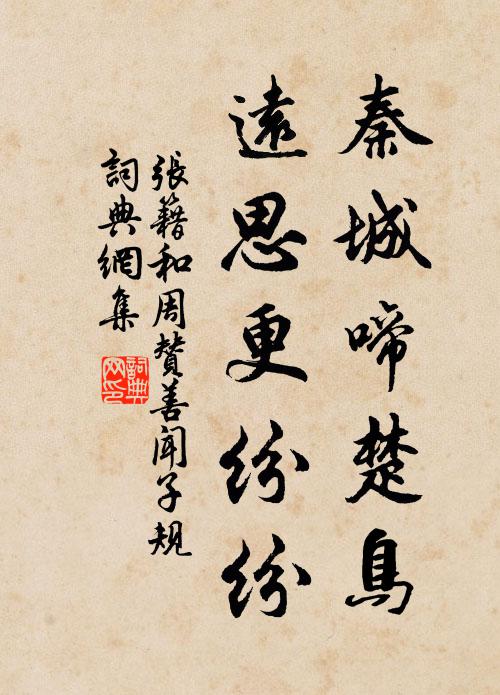 秦城啼楚鳥
遠思更紛紛
張籍和周贊善聞子規
詞典網集
詞典网印